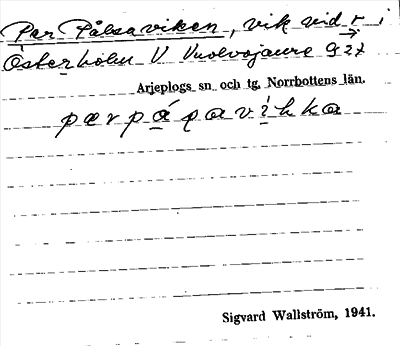 Per Pålsaviken, vik vid r i
Österholm V. Vuolvojaure 9 27
Arjeplogs sn och tg, Norrbottens län.
pærpáɩavìkka
Sigvard Wallström, 1941.